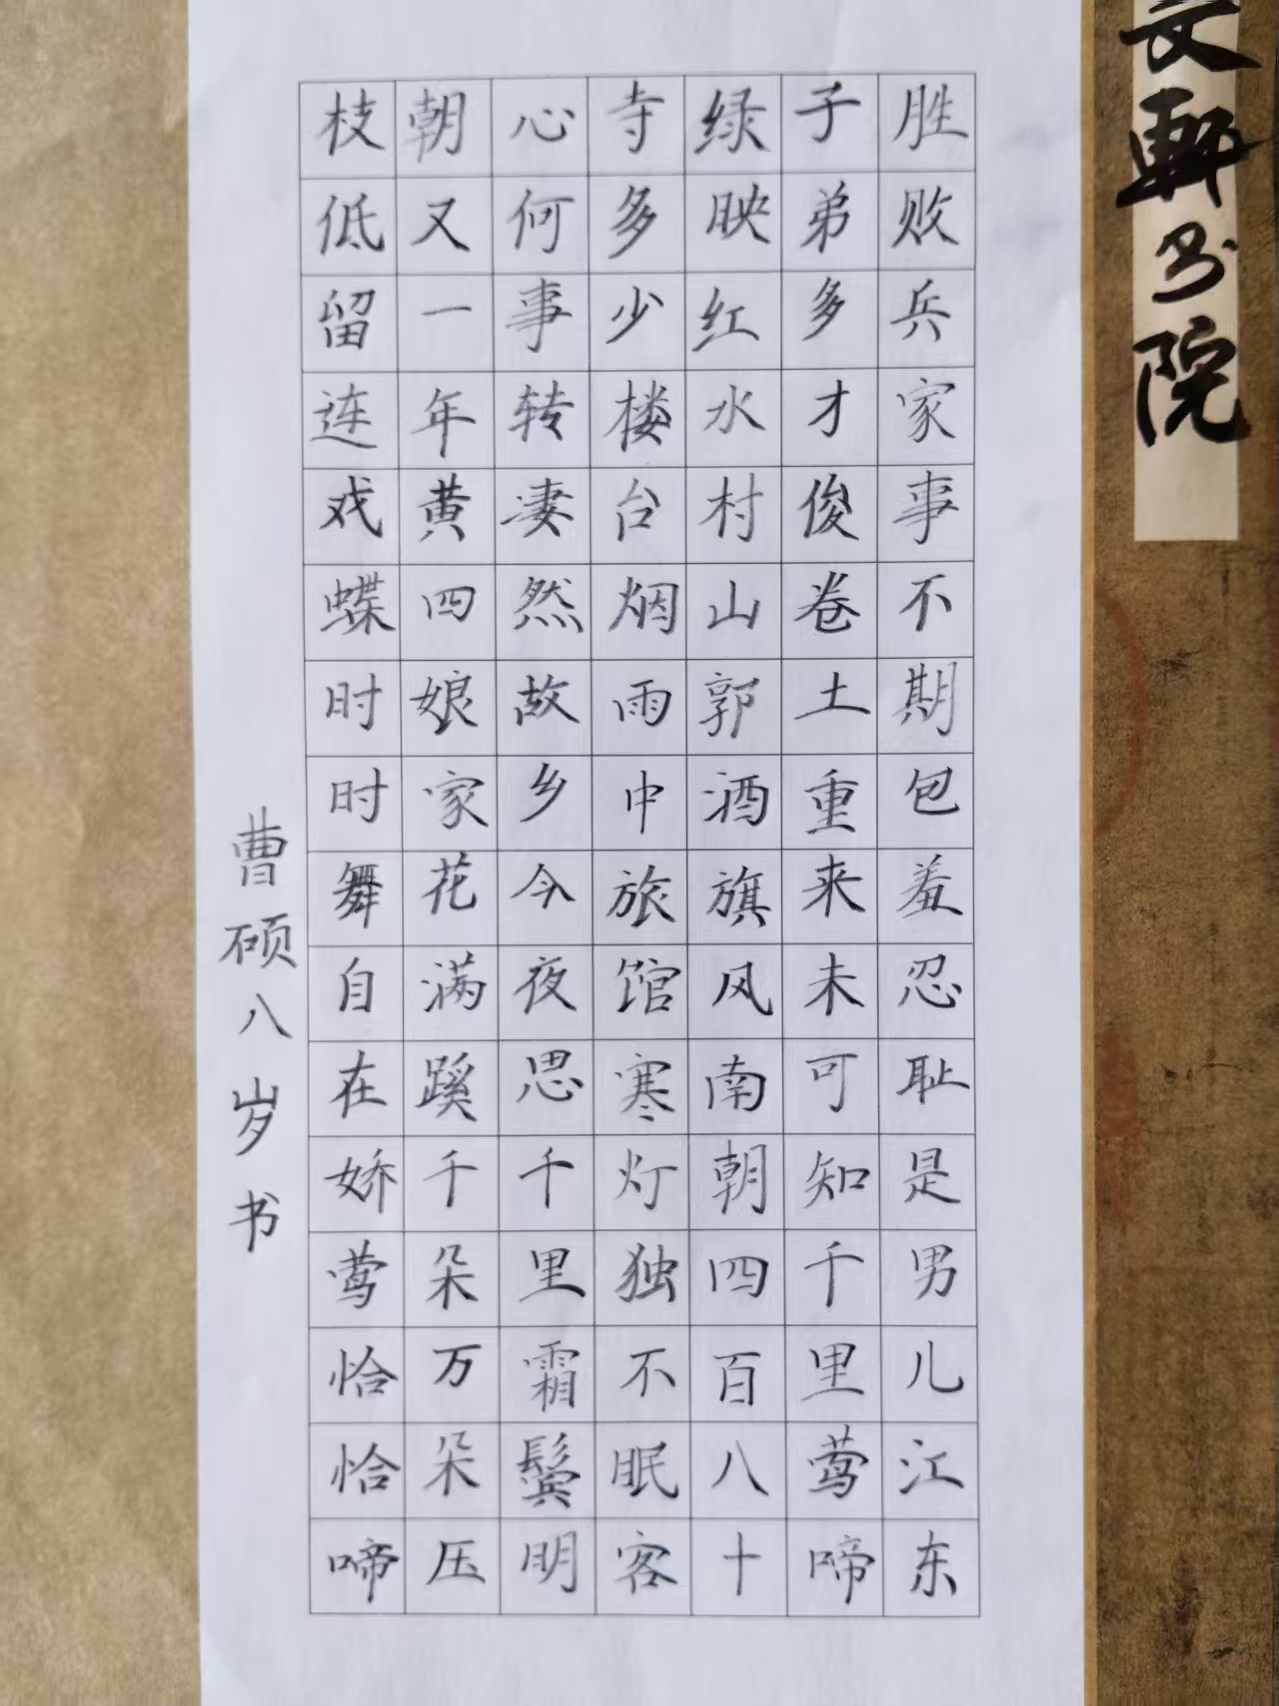 文軒书院
胜败兵家事不期包羞忍耻是男儿江东
子弟多才俊卷土重来未可知千里莺啼
绿映红水村山郭酒旗风南朝四百八十
寺多少楼台烟雨中旅馆寒灯独不眠客
心何事转凄然故乡今夜思千里霜鬓明
朝又一年黄四娘家花满蹊千朵万朵压
枝低留连戏蝶时时舞自在娇莺恰恰啼
曹硕八岁书